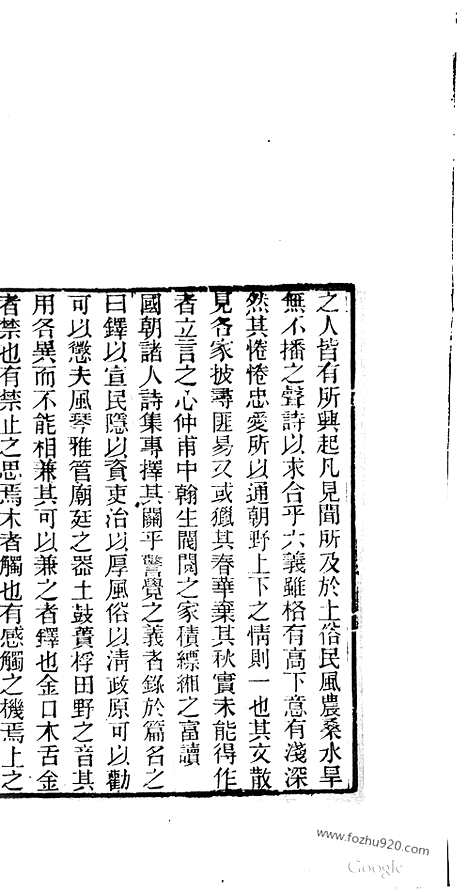 之人皆有所興起凡見聞所及於土俗民風農桑水旱
無不播之聲詩以求合乎六義雖格有高下意有淺深
然其惓惓忠愛所以通朝野上下之情則一也其文散
見各家披尋匪易又或獵其春華棄其秋實未能得作
者立言之心仲甫中翰生閥閱之家積縹緗之富讀
國朝諸人詩集專擇其關乎警覺之義者錄於篇名之
曰鐸以宣民隱以資吏治以厚風俗以清政原可以勸
可以懲夫風琴雅管廟廷之器土鼓蕢桴田野之音其
用各異而不能相兼其可以兼之者鐸也金口木舌金
者禁也有禁止之思焉木者觸也有感觸之機焉上之
www.fozhu920.com
Google